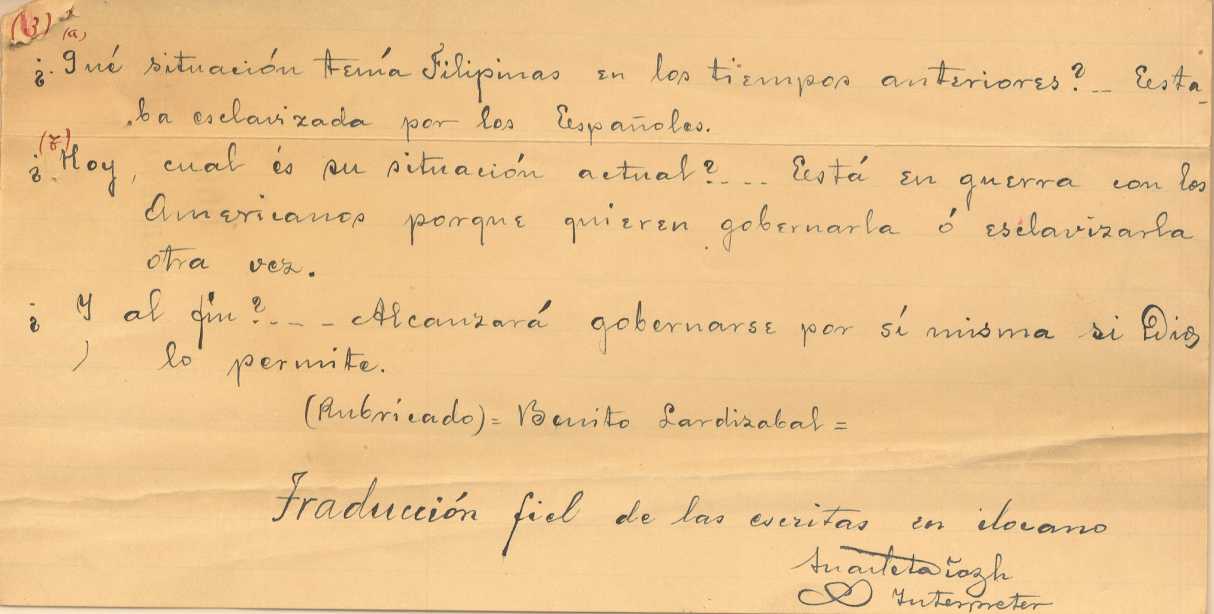 (3) (a)
¿Qué situación tenía Filipinas en los tiempos anteriores? -- Esta-
ba esclavizada por los Españoles.
¿Hoy, cual és su situación actual? ---- Está en guerra con los
Americanos porque quieren gobernarla ó esclavizarla
otra vez.
¿Y al fin? ---- Alcanzará gobernarse por sí misma si Dios
lo permite.
(Rubricado) = Benito Lardizabal =
Traducción fiel de las escritas en ilocano
Interpreter